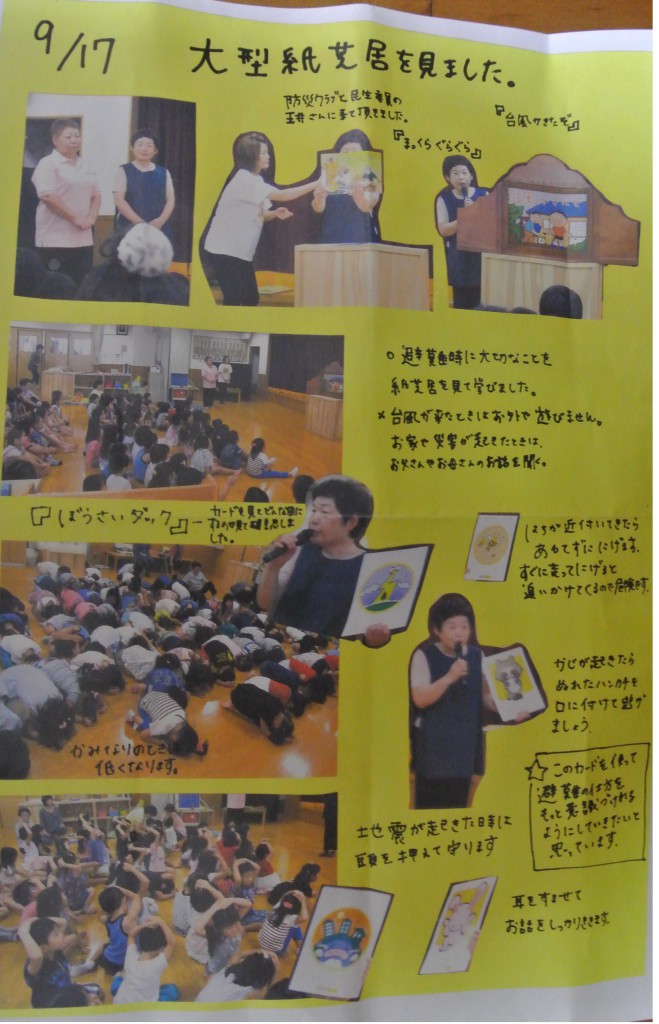 9/17
大型紙芝居を見ました。
防災クラブと民生委員の
玉井さんに来て頂きました。
『まっくらぐらぐら』
『台風がきたぞ』
○避難時に大切なことを
紙芝居を見て学びました。
×台風が来たときはお外で遊びません。
お家で災害が起きたときは、
お父さんやお母さんのお話を聞く。
『ぼうさいダック』
カードを見てどんな
した。
はちが近付いてきたら
あわてずににげます。
すぐに走ってにげると
追いかけてくるので危険です。
かじが起きたら
ぬれたハンカチを
口に付けて逃げ
ましょう。
かみなりのときは
低くなります。
☆このカードを使って
避難の仕方を
もっと意識づけれる
ようにしていきたいと
思っています。
地震が起きた時は
頭を押えて守ります
耳をすませて
お話をしっかりききます